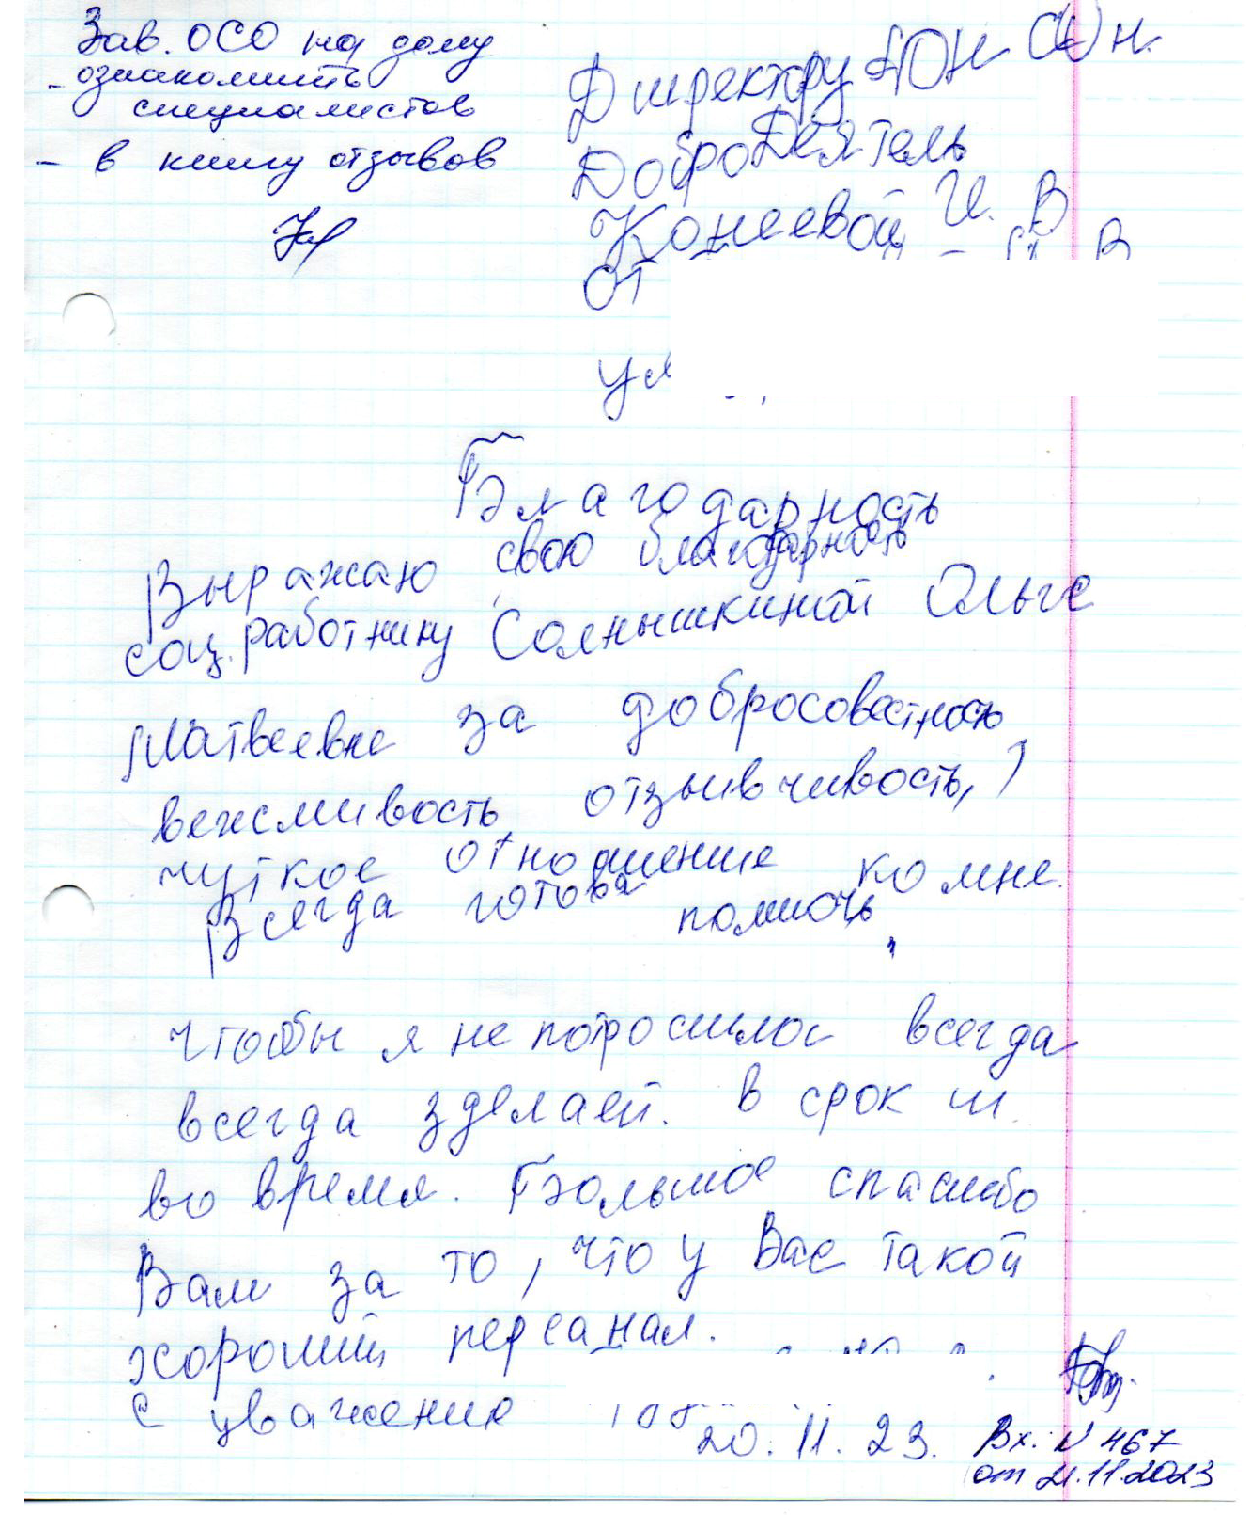 Зав. ОСО на дому
- ознакомить
специалистов
- в книгу отзывов
Директору АОН СОН
ДоброДеятель
Конеевой И. В
от
ул
Благодарность
Выражаю свою благодарность
соц. работнику Солнышкиной Ольге
Матвеевне за добросовестность
вежливость отзывчивость,
чуткое отношение ко мне.
Всегда готова помочь,
чтобы я не попросила всегда
всегда зделает. в срок и
во время. Большое спасибо
Вам за то, что у Вас такой
хороший персанал.
с уважение
20.11.23.
Вх. N 467
от 21.11.2023